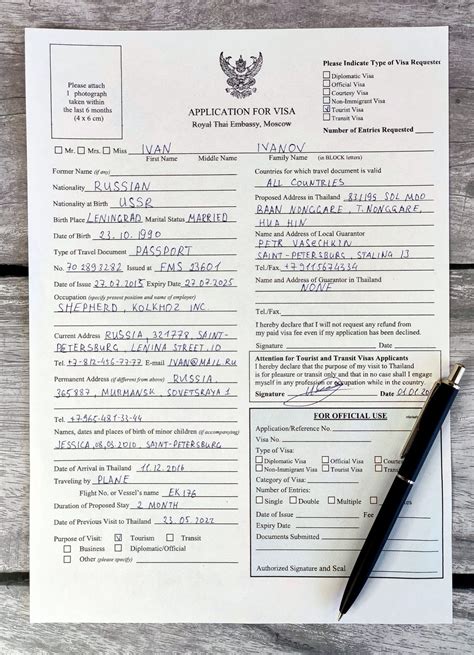 Please attach
1 photograph
taken within
the last 6 months
(4 x 6 cm)
APPLICATION FOR VISA
Royal Thai Embassy, Moscow
Please Indicate Type of Visa Requested
Diplomatic Visa
Official Visa
Courtesy Visa
Non-Immigrant Visa
V Tourist Visa
Transit Visa
Number of Entries Requested
Mr. Mrs. Miss IVAN IVANOV
First Name Middle Name Family Name (in BLOCK letters)
Former Name (if any)
Nationality RUSSIAN
Nationality at Birth USSR
Birth Place LENINGRAD Marital Status MARRIED
Date of Birth 23.10.1990
Type of Travel Document PASSPORT
No. 70 2893282 Issued at FMS 23601
Date of Issue 27.07.2015 Expiry Date 27.07.2025
Occupation (specify present position and name of employer)
SHEPHERD, KOLKHOZ INC.
Current Address RUSSIA, 321778, SAINT-
PETERSBURG, LENINA STREET, 10
Tel. +7-812-456-77-77 E-mail IVAN@MAIL.RU
Permanent Address (if different from above) RUSSIA,
365887, MURMANSK, SOVETSRAYA 1
Tel. +7-965-487-33-44
Names, dates and places of birth of minor children (if accompanying)
JESSICA, 08.09.2010, SAINT-PETERSBURG
Date of Arrival in Thailand 11.12.2016
Traveling by PLANE
Flight No. or Vessel's name EK 176
Duration of Proposed Stay 2 MONTH
Date of Previous Visit to Thailand 23.05.2022
Purpose of Visit: V Tourism Transit
Business Diplomatic/Official
Other (please specify)
Countries for which travel document is valid
ALL COUNTRIES
Proposed Address in Thailand 83/195 SOL MOO
BAAN NONGGARE, T. NONGGARE,
HUA HIN
Name and Address of Local Guarantor
PETR VASECHKIN
SAINT-PETERSBURG, STALINA 13
Tel./Fax. +79115674334
Name and Address of Guarantor in Thailand
NONE
Tel./Fax.
I hereby declare that I will not request any refund from
my paid visa fee even if my application has been declined.
Signature Date
Attention for Tourist and Transit Visas Applicants
I hereby declare that the purpose of my visit to Thailand
is for pleasure or transit only and that in no case shall I engage
myself in any profession or occupation while in the country.
Signature Date 01.01.20
FOR OFFICIAL USE
Application/Reference No.
Visa No.
Type of Visa:
Diplomatic Visa Official Visa
Non-Immigrant Visa Tourist Visa
Category of Visa:
Number of Entries:
Single Double Multiple
Date of Issue
Expiry Date
Documents Submitted
Authorized Signature and Seal